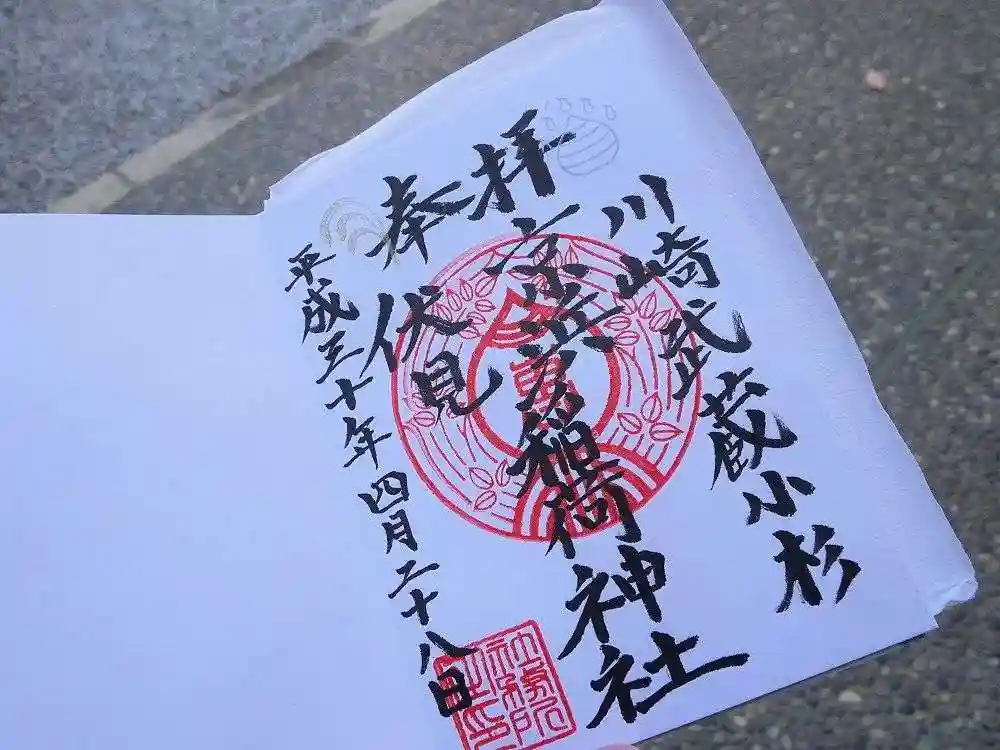 川崎武蔵小杉
奉拝
京
稲荷神社
伏見
平成三十年四月二十八日
社務所
之印